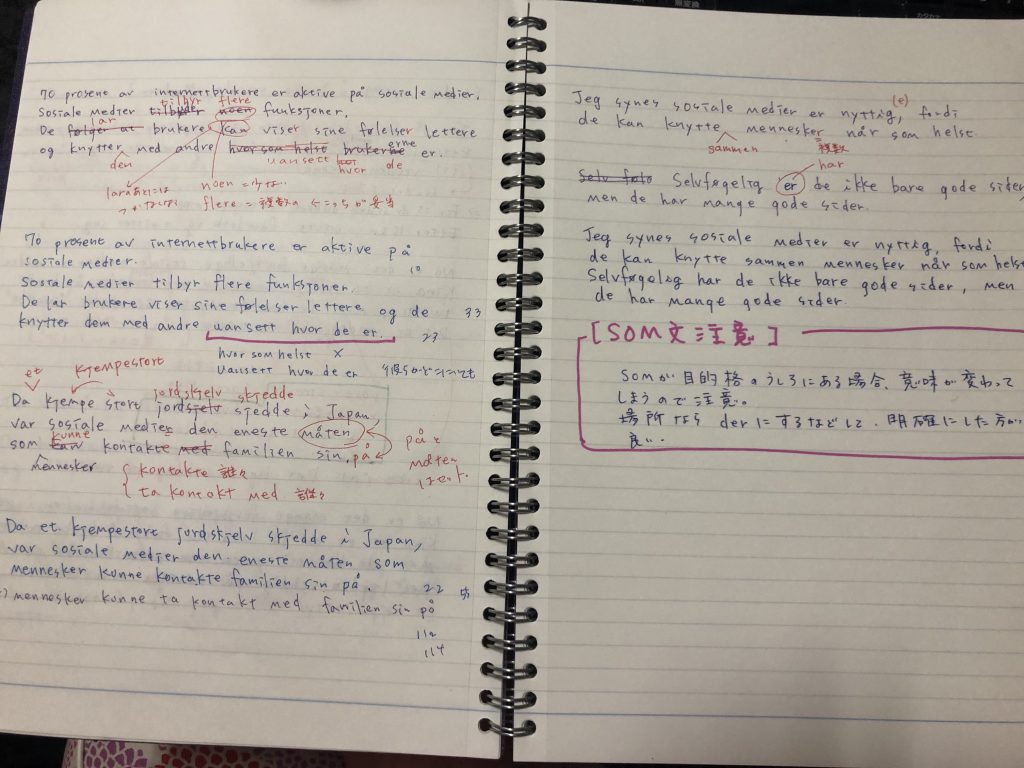 70 prosent av internettbrukere er aktive på sosiale medier.
tilbyr flere
Sosiale medier tilbyder noen funksjoner.
lar
De følger at brukere kan viser sine følelser lettere
og knytter med andre hvor som helst brukerne er.
den uansett hvor de
noen = 少
flere = 複数の が妥当
70 prosent av internettbrukere er aktive på
sosiale medier.
10
Sosiale medier tilbyr flere funksjoner.
De lar brukere viser sine følelser lettere og de 33
knytter dem med andre uansett hvor de er. 23
hvor som helst ×
uansett hvor de er
et kjempestort
jordskjelv skjedde
Da kjempe stort jordsjelv sjedde i Japan,
var sosiale medier den eneste måten
kunne
som kan kontakte med familien sin på
mennesker
på と
måten
はセット
kontakte 誰々
ta kontakt med 誰々
Da et kjempestort jordskjelv skjedde i Japan,
var sosiale medier den eneste måten som
mennesker kunne kontakte familien sin på. 22 55
mennesker kunne ta kontakt med familien sin på
112
114
(e)
Jeg synes sosiale medier er nyttig, fordi
de kan knytte mennesker når som helst.
sammen 複数
har
Selv følg Selvføgelig er de ikke bare gode sider
men de har mange gode sider.
Jeg synes sosiale medier er nyttig, fordi
de kan knytte sammen mennesker når som helst
Selvføgelig har de ikke bare gode sider, men
de har mange gode sider.
[SOM文注意]
somが目的格のうしろにある場合、意味が変わって
しまうので注意。
場所なら derにするなどして、明確にした方が
良い。